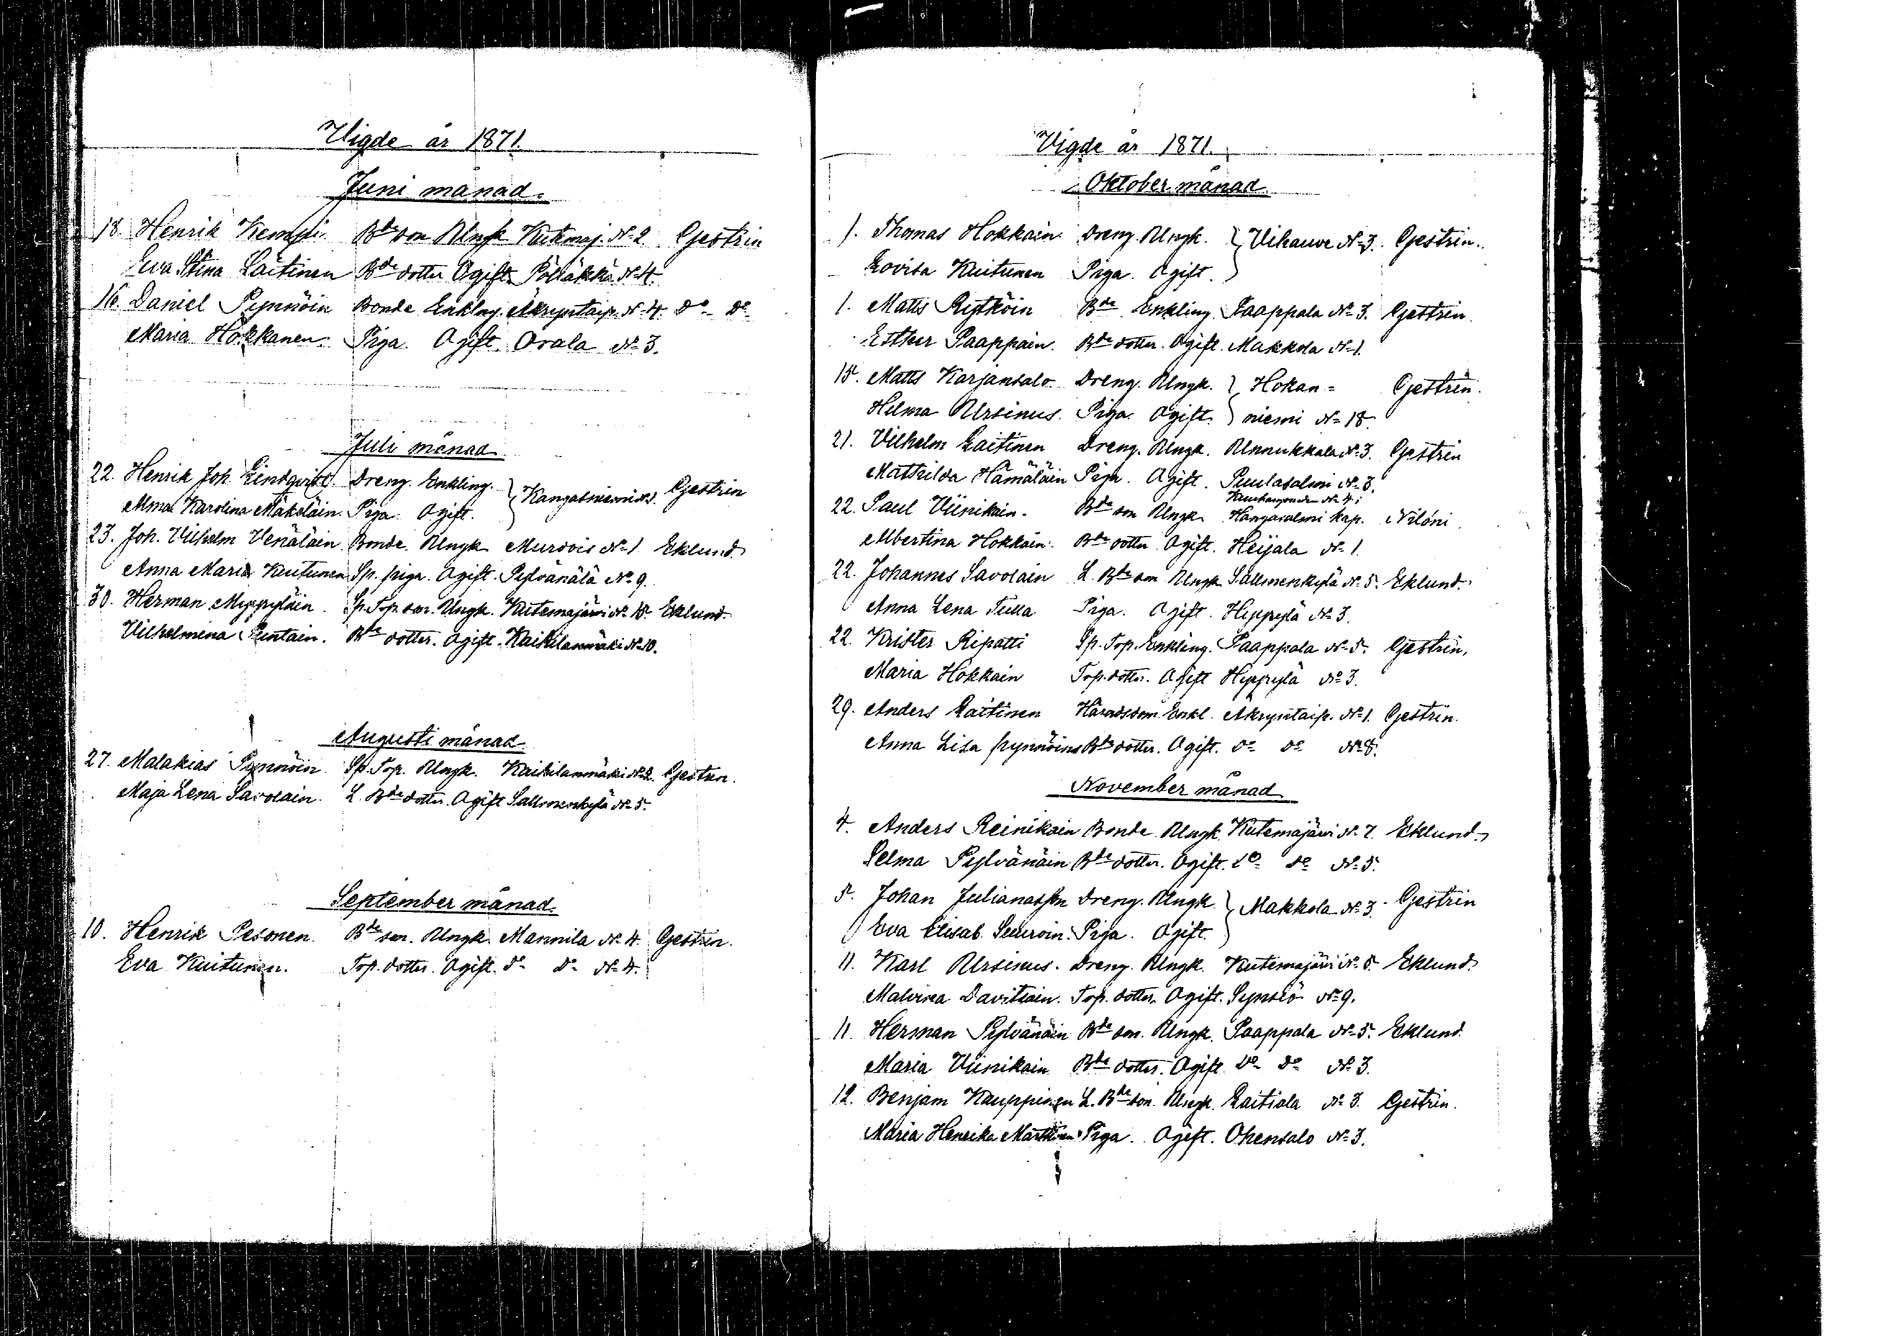 Vigde år 1871.
Juni månad.
18. Henrik Kemppi. Bde son Ungk. Kutemaj. No 2 Gestrin
Eva Stina Laitinen Bde dotter Ogift. Pölläkkä No 4.
16. Daniel Pynnöin Bonde Enkling. No 4. Do Do
Maria Hokkanen. Piga. Ogift. Orala No 3.
Juli månad
22. Henrik Joh. Lindqvist Dreng. Enkling. } Kangasniemi Gestrin
Alma Karolina Mäkeläin. Piga. Ogift.
23. Joh. Vilhelm Venäläin Bonde. Ungk. Murtois No 1 Eklund
Anna Maria Kuitunen Sp. piga. Ogift. Pylvänälä No 9.
30. Herman Myyryläin. Sp. Top. son. Ungk. Kutemajärvi Eklund.
Vilhelmina Bde dotter. Ogift. Kaikilanmäki No 10.
Augusti månad.
27. Malakias Pynnöin Sp. Top. Ungk. Kaikilanmäki No 2. Gestrin.
Maja Lena Savolain. L. Bde dotter. Ogift Salmenkylä No 5.
September månad.
10. Henrik Pesonen. Bde son. Ungk. Mannila No 4. Gestrin.
Eva Kuitunen. Top. dotter. Ogift. Do Do No 4.
Vigde år 1871.
Oktober månad.
1. Thomas Hokkain Dreng. Ungk. } Vihauve No 3. Gestrin.
Lovisa Kuitunen Piga. Ogift.
1. Matts Rytköin Bde Enkling. Paappala No 3. Gestrin.
Esther Paappain. Bde dotter. Ogift. Makkola No 1.
15. Matts Karjansalo. Dreng. Ungk. } Hokan= Gestrin.
Hilma Ursinus. Piga. Ogift. } niemi No 18.
21. Vilhelm Laitinen Dreng. Ungk. Unnukkala No 3. Gestrin
Mathilda Hämäläin Piga. Ogift. Puulasalmi No 3.
22. Paul Viinikain. Bde son Ungk. Hangasalmi kap. Nilóni.
Albertina Hokkain. Bde dotter. Ogift. Heijala No 1.
22. Johannes Savolain L. Bde son Ungk. Salmenkylä No 5. Eklund.
Anna Lena Tulla Piga. Ogift. Hippylä No 3.
22. Krister Ripatti Sp. Top. Enkling. Paappala No 5. Gestrin.
Maria Hokkain Top. dotter. Ogift Hippylä No 3.
29. Anders Laitinen Häradsdom. Enkl. No 1. Gestrin.
Anna Lisa Pynnöinen Bde dotter. Ogift. Do Do No 8.
November månad
4. Anders Reinikain Bonde. Ungk Kutemajärvi No 7. Eklund.
Selma Pylvänäin Bde dotter. Ogift. Do Do No 5.
5. Johan Julianasson Dreng. Ungk. } Makkola No 3. Gestrin
Eva Elisab. Seuroin. Piga. Ogift.
11. Karl Ursinus. Dreng. Ungk. Kutemajärvi No 5. Eklund.
Malvina Davitiain. Top. dotter. Ogift. Synsiö No 9.
11. Herman Pylvänäin Bde son. Ungk. Paappala No 5. Eklund.
Maria Viinikain Bde dotter. Ogift Do Do No 3.
12. Benjam Kauppinen L. Bde son. Ungk. Laitiala No 3. Gestrin.
Maria Henrika Marttinen Piga. Ogift. Ohensalo No 3.